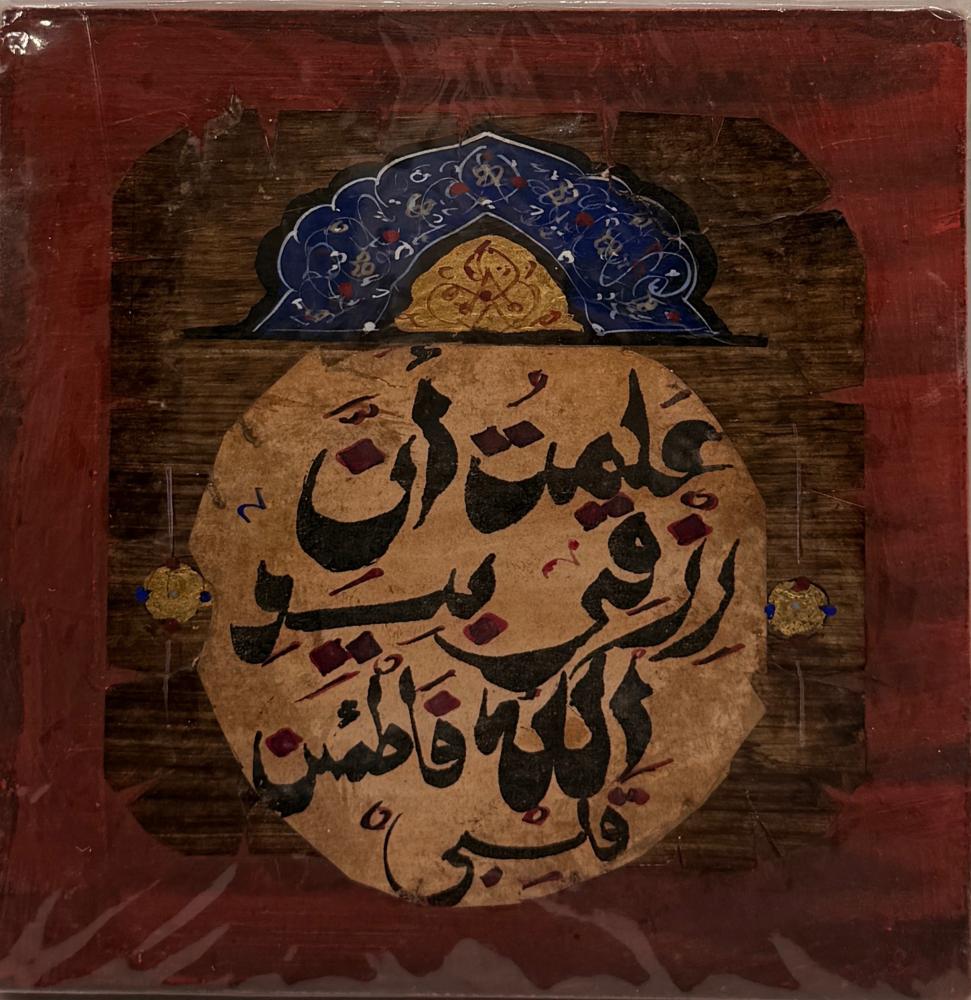 عَلِمتُ أَنّ
رزقي بيدِ
اللهِ فَاطْمَئن
قلبي